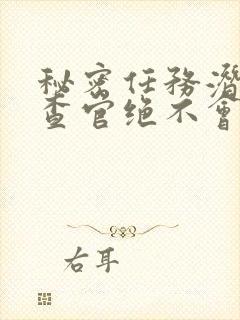 秘密任務潛
查官绝不會
右耳